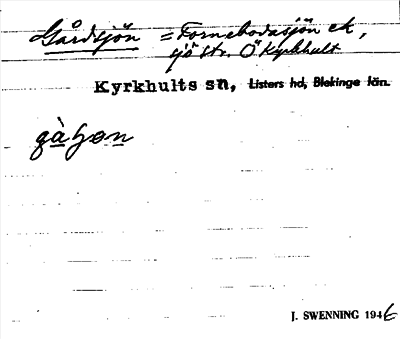 Gårdsjön = Fornebodasjön ek,
sjö str. Ö Kyrkhult
Kyrkhults sn, Listers hd, Blekinge län.
gàʃơn
J. SWENNING 1946